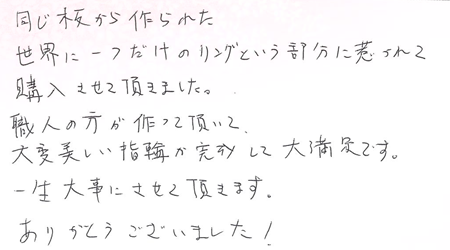 同じ板から作られた
世界に一つだけのリングという部分に惹かれて
購入させて頂きました。
職人の方が作って頂いて、
大変美しい指輪が完成して大満足です。
一生大事にさせて頂きます。
ありがとうございました！